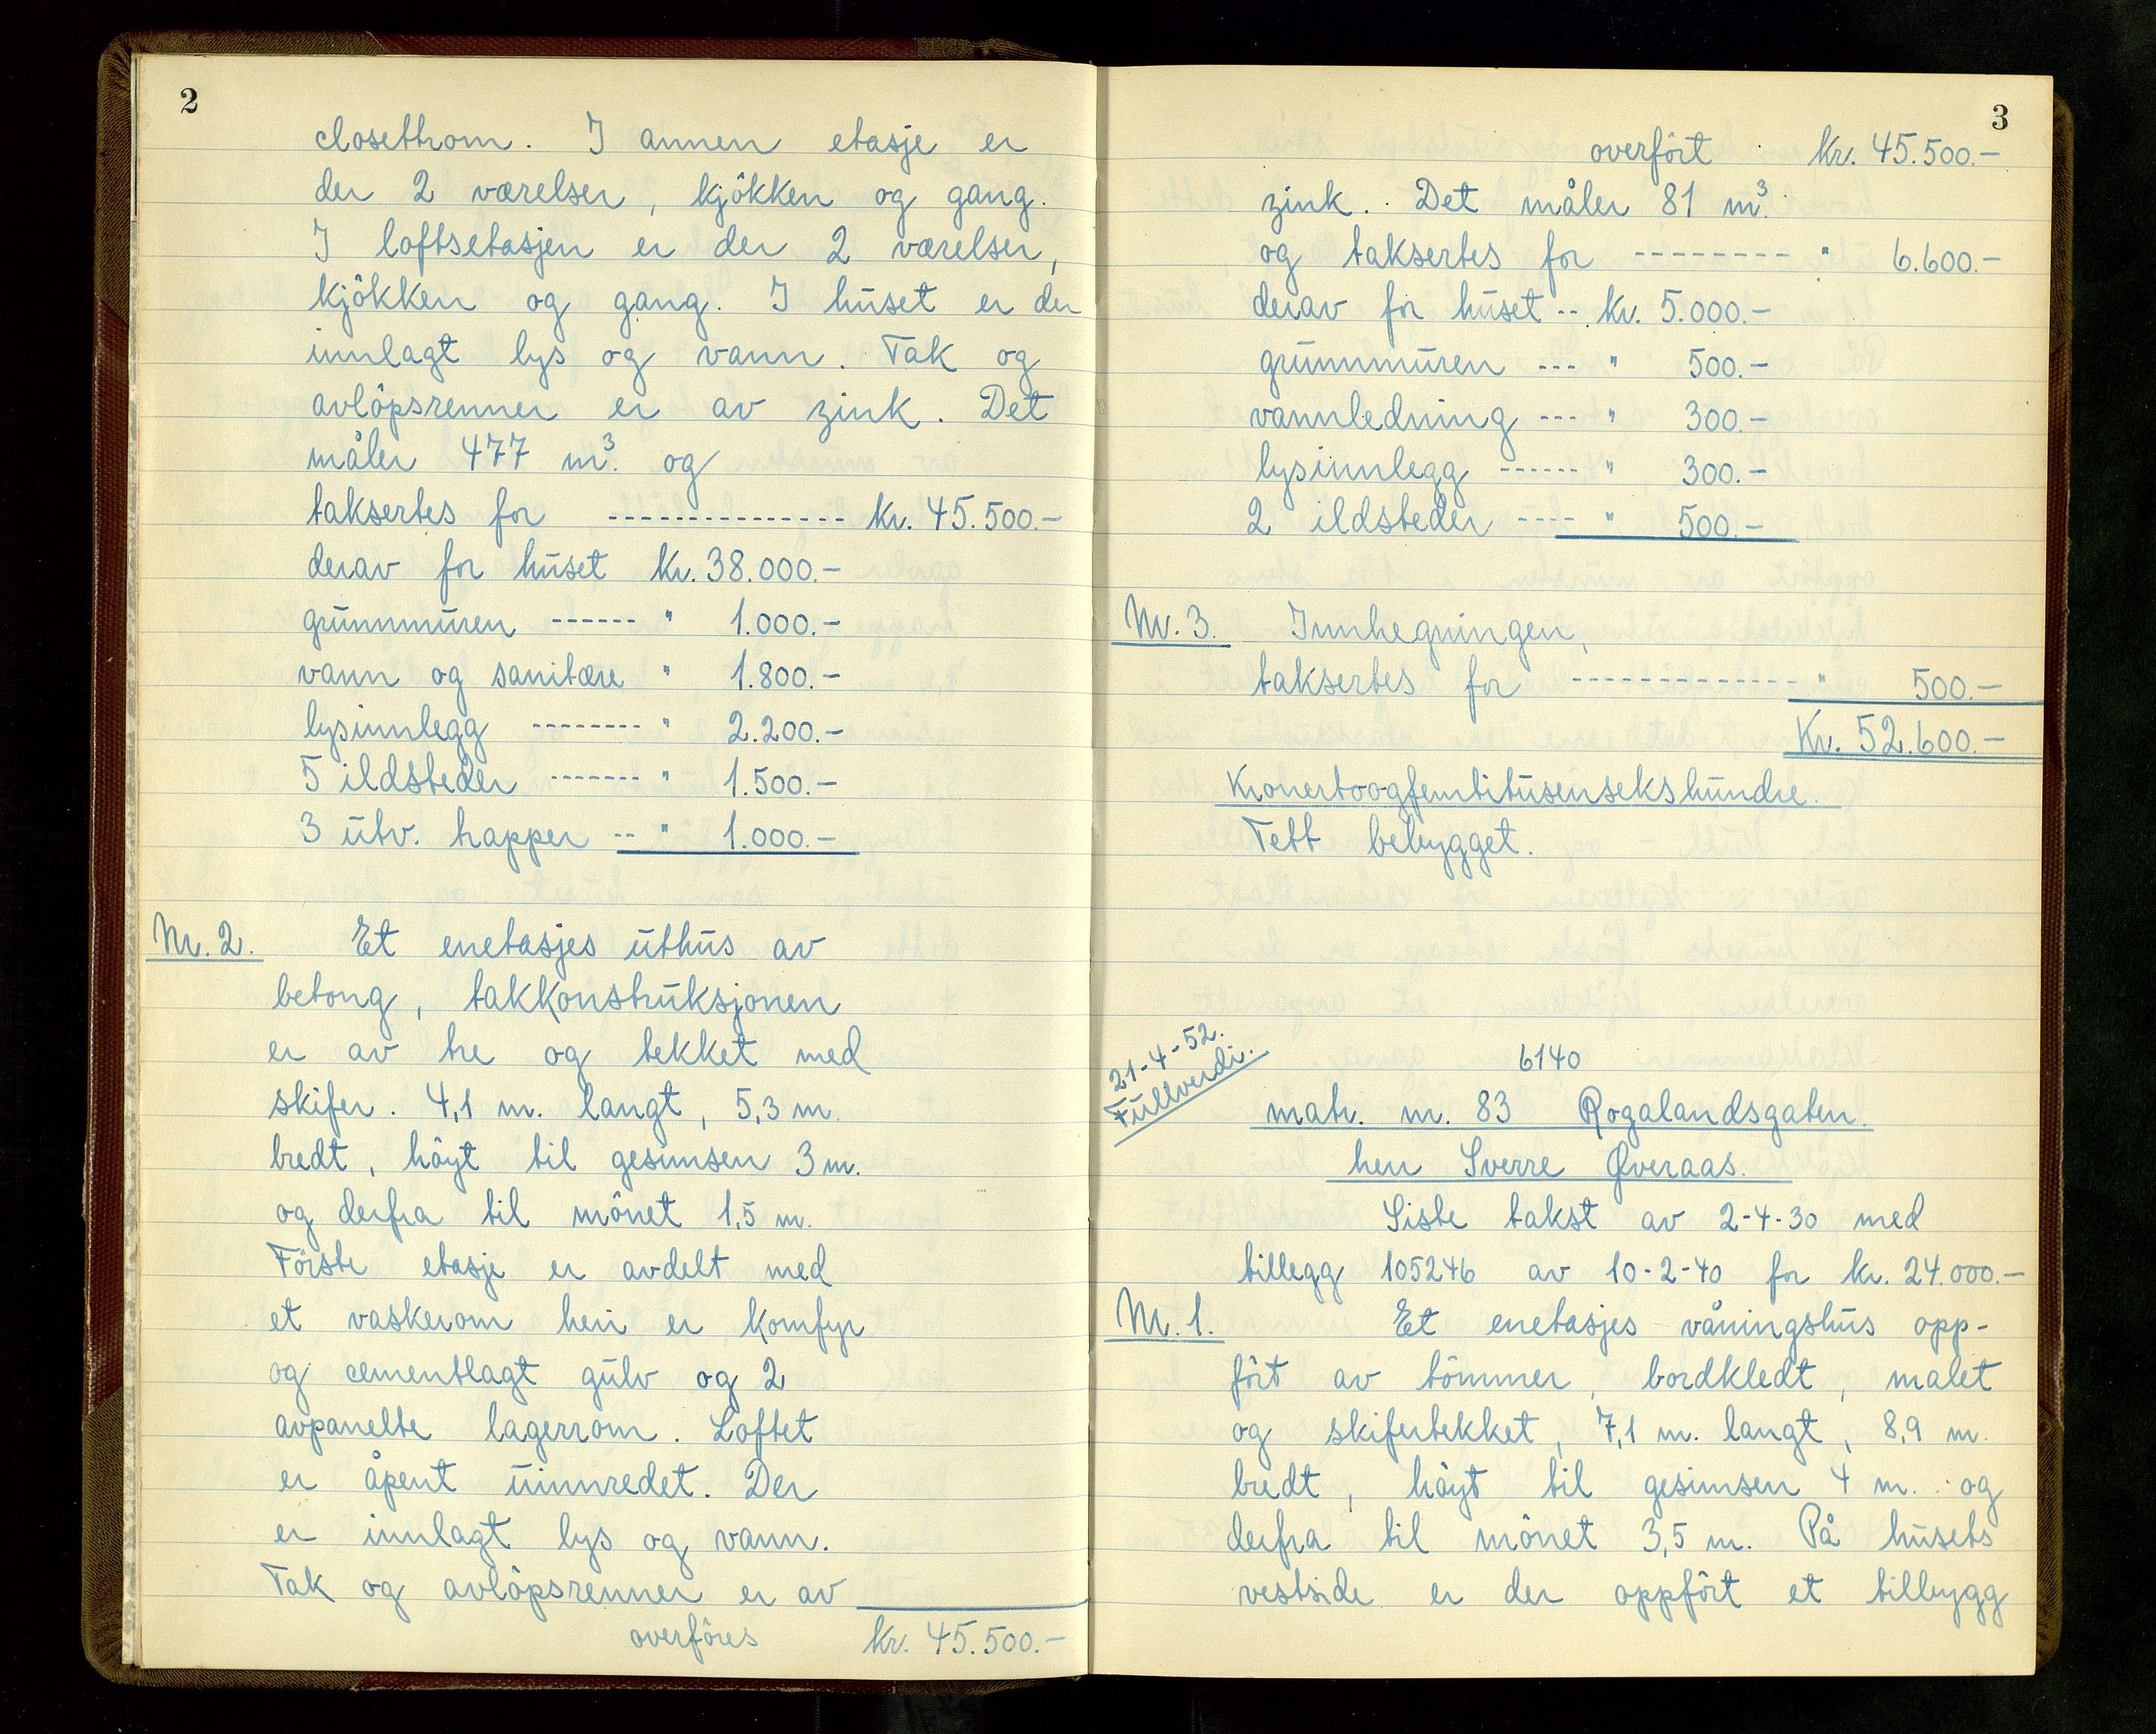 2
closettrom. I annen etasje er
der 2 værelser, kjökken og gang.
I loftsetasjen er der 2 værelser,
kjökken og gang. I huset er der
innlagt lys og vann. Tak og
avlöpsrenner er av zink. Det
måler 477 m³. og
taksertes for -------------- kr. 45.500.-
derav for huset kr. 38.000.-
grunnmuren ------ " 1.000.-
vann og sanitære " 1.800.-
lysinnlegg -------- " 2.200.-
5 ildsteder ------- " 1.500.-
3 utv. trapper -- " 1.000.-
Nr. 2. Et enetasjes uthus av
betong, takkonstruksjonen
er av tre og tekket med
skifer. 4,1 m. langt, 5,3 m.
bredt, höyt til gesimsen 3 m.
og derfra til mönet 1,5 m.
Förste etasje er avdelt med
et vaskerom heri er komfyr
og cementlagt gulv og 2
avpanelte lagerrom. Loftet
er åpent uinnredet. Der
er innlagt lys og vann.
Tak og avlöpsrenner er av
overföres kr. 45.500.-
3
overfört kr. 45.500.-
zink. Det måler 81 m³.
og taksertes for -------- " 6.600.-
derav for huset -- kr. 5.000.-
grunnmuren --- " 500.-
vannledning --- " 300.-
lysinnlegg ------ " 300.-
2 ildsteder ---- " 500.-
Nr. 3. Innhegningen,
taksertes for -------------- " 500.-
Kr. 52.600.-
Kronertoogfemtitusensekshundre.
Tett bebygget.
21-4-52.
Fullverdi.
6140
matr. nr. 83 Rogalandsgaten.
herr Sverre Øveraas.
Siste takst av 2-4-30 med
tillegg 105246 av 10-2-40 for kr. 24.000.-
Nr. 1. Et enetasjes våningshus opp-
fört av tömmer, bordkledt, malet
og skifertekket, 7,1 m. langt, 8,9 m.
bredt, höyt til gesimsen 4 m. og
derfra til mönet 3,5 m. På husets
vestside er der oppfört et tilbygg